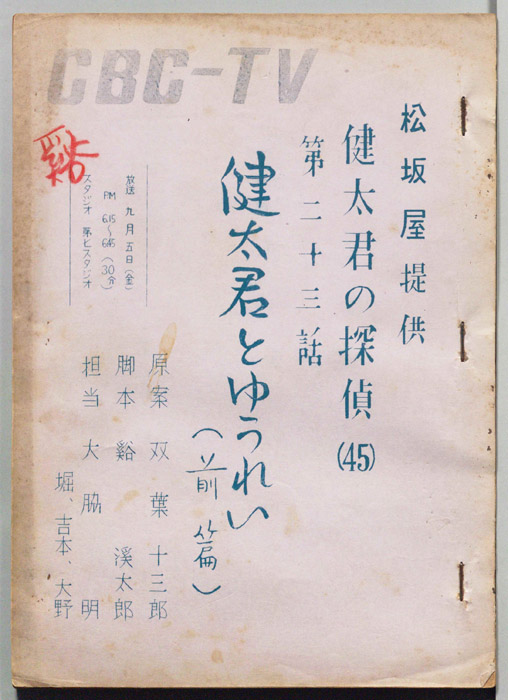 CBC-TV
松坂屋提供
健太君の探偵(45)
第二十三話
健太君とゆうれい
(前篇)
放送 九月五日(金)
PM 6.15~6.45(30分)
スタジオ 第七スタジオ
原案 双葉十三郎
脚本 谿 溪太郎
担当 大脇 明
堀、吉本、大野